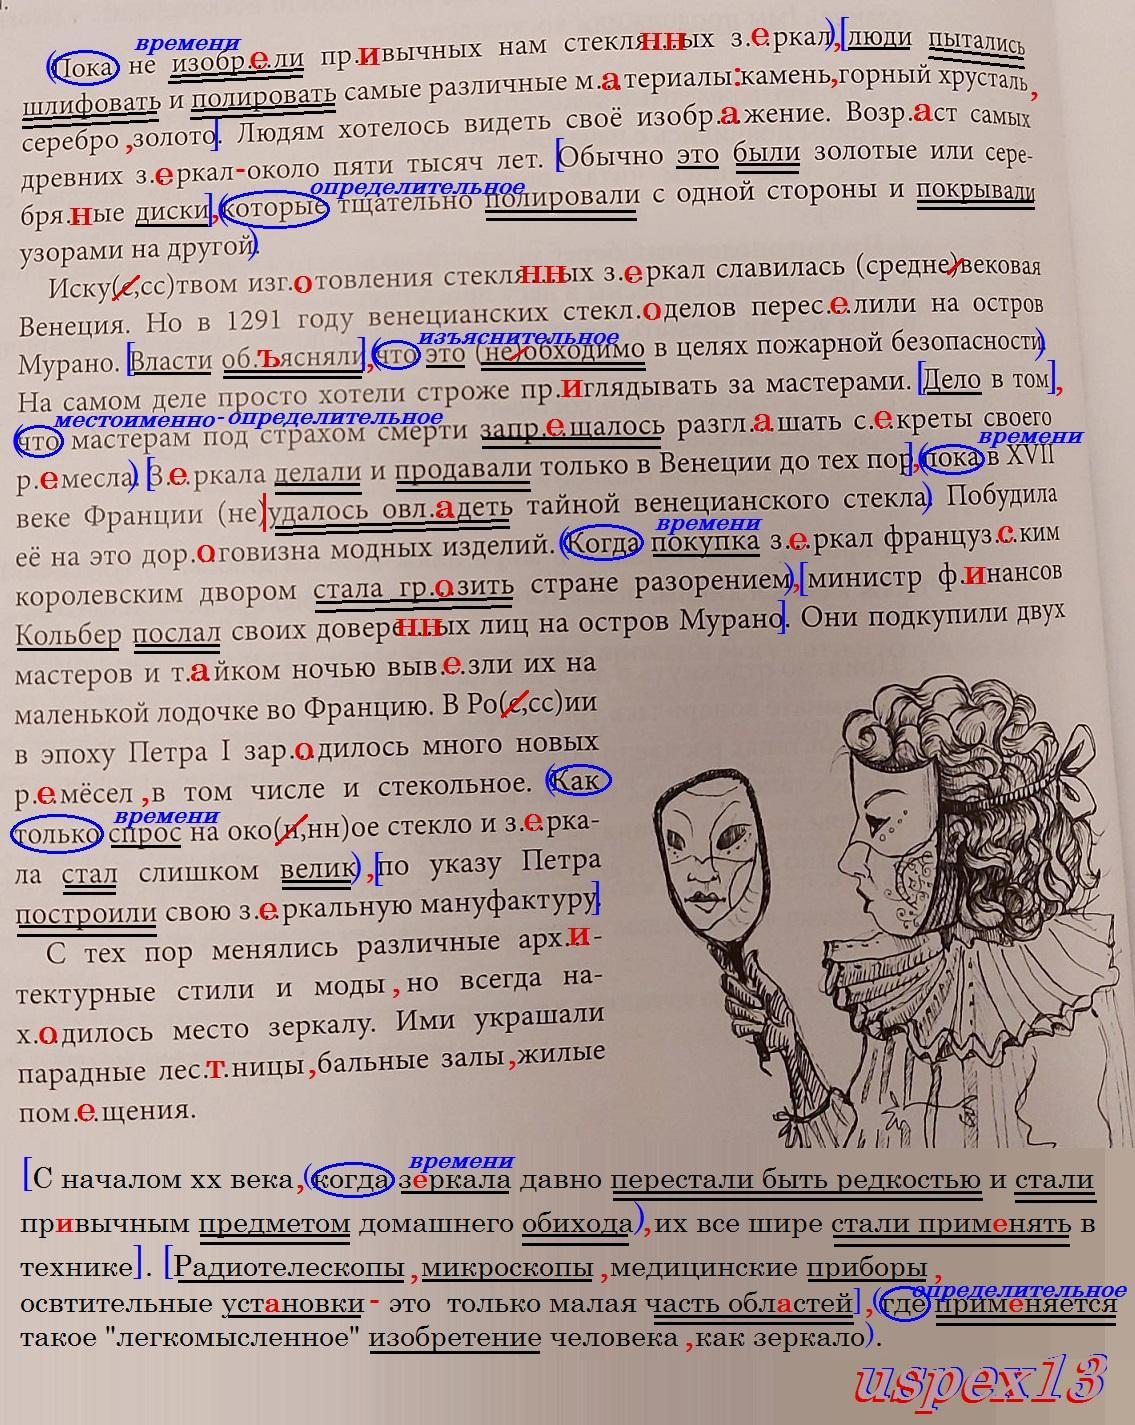 времени
(Пока не изобр.е.ли пр.ивычных нам стеклянных з.е.ркал),[люди пытались
шлифовать и полировать самые различные м.атериалы:камень,горный хрусталь,
серебро ,золото]. Людям хотелось видеть своё изобр.ажение. Возр.аст самых
древних з.еркал-около пяти тысяч лет. [Обычно это были золотые или сере-
определительное
бря.ные диски],(которые тщательно полировали с одной стороны и покрывали
узорами на другой).
Иску(с,сс)твом изг.отовления стеклянных з.еркал славилась (средне)вековая
Венеция. Но в 1291 году венецианских стекл.оделов перес.елили на остров
изъяснительное
Мурано. [Власти об.ъясняли],(что это (не)обходимо в целях пожарной безопасности)
На самом деле просто хотели строже пр.иглядывать за мастерами. [Дело в том],
местоименно-определительное
(что мастерам под страхом смерти запр.ещалось разгл.ашать с.екреты своего
времени
р.емесла). [З.еркала делали и продавали только в Венеции до тех пор],(пока в XVII
веке Франции (не)|удалось овл.адеть тайной венецианского стекла). Побудила
времени
её на это дор.оговизна модных изделий. (Когда покупка з.еркал француз.с.ким
королевским двором стала гр.озить стране разорением),[министр ф.инансов
Кольбер послал своих доверенных лиц на остров Мурано]. Они подкупили двух
мастеров и т.айком ночью выв.езли их на
маленькой лодочке во Францию. В Ро(с,сс)ии
в эпоху Петра I зар.одилось много новых
р.емёсел ,в том числе и стекольное. (Как
времени
только спрос на око(н,нн)ое стекло и з.ерка-
ла стал слишком велик) ,[по указу Петра
построили свою з.еркальную мануфактуру].
С тех пор менялись различные арх.и-
тектурные стили и моды ,но всегда на-
х.одилось место зеркалу. Ими украшали
парадные лес.т.ницы ,бальные залы ,жилые
пом.ещения.
времени
[С началом xx века,(когда зеркала давно перестали быть редкостью и стали
привычным предметом домашнего обихода),их все шире стали применять в
технике]. [Радиотелескопы ,микроскопы ,медицинские приборы ,
определительное
освтительные установки- это только малая часть областей] ,(где применяется
такое "легкомысленное" изобретение человека ,как зеркало).
uspex13